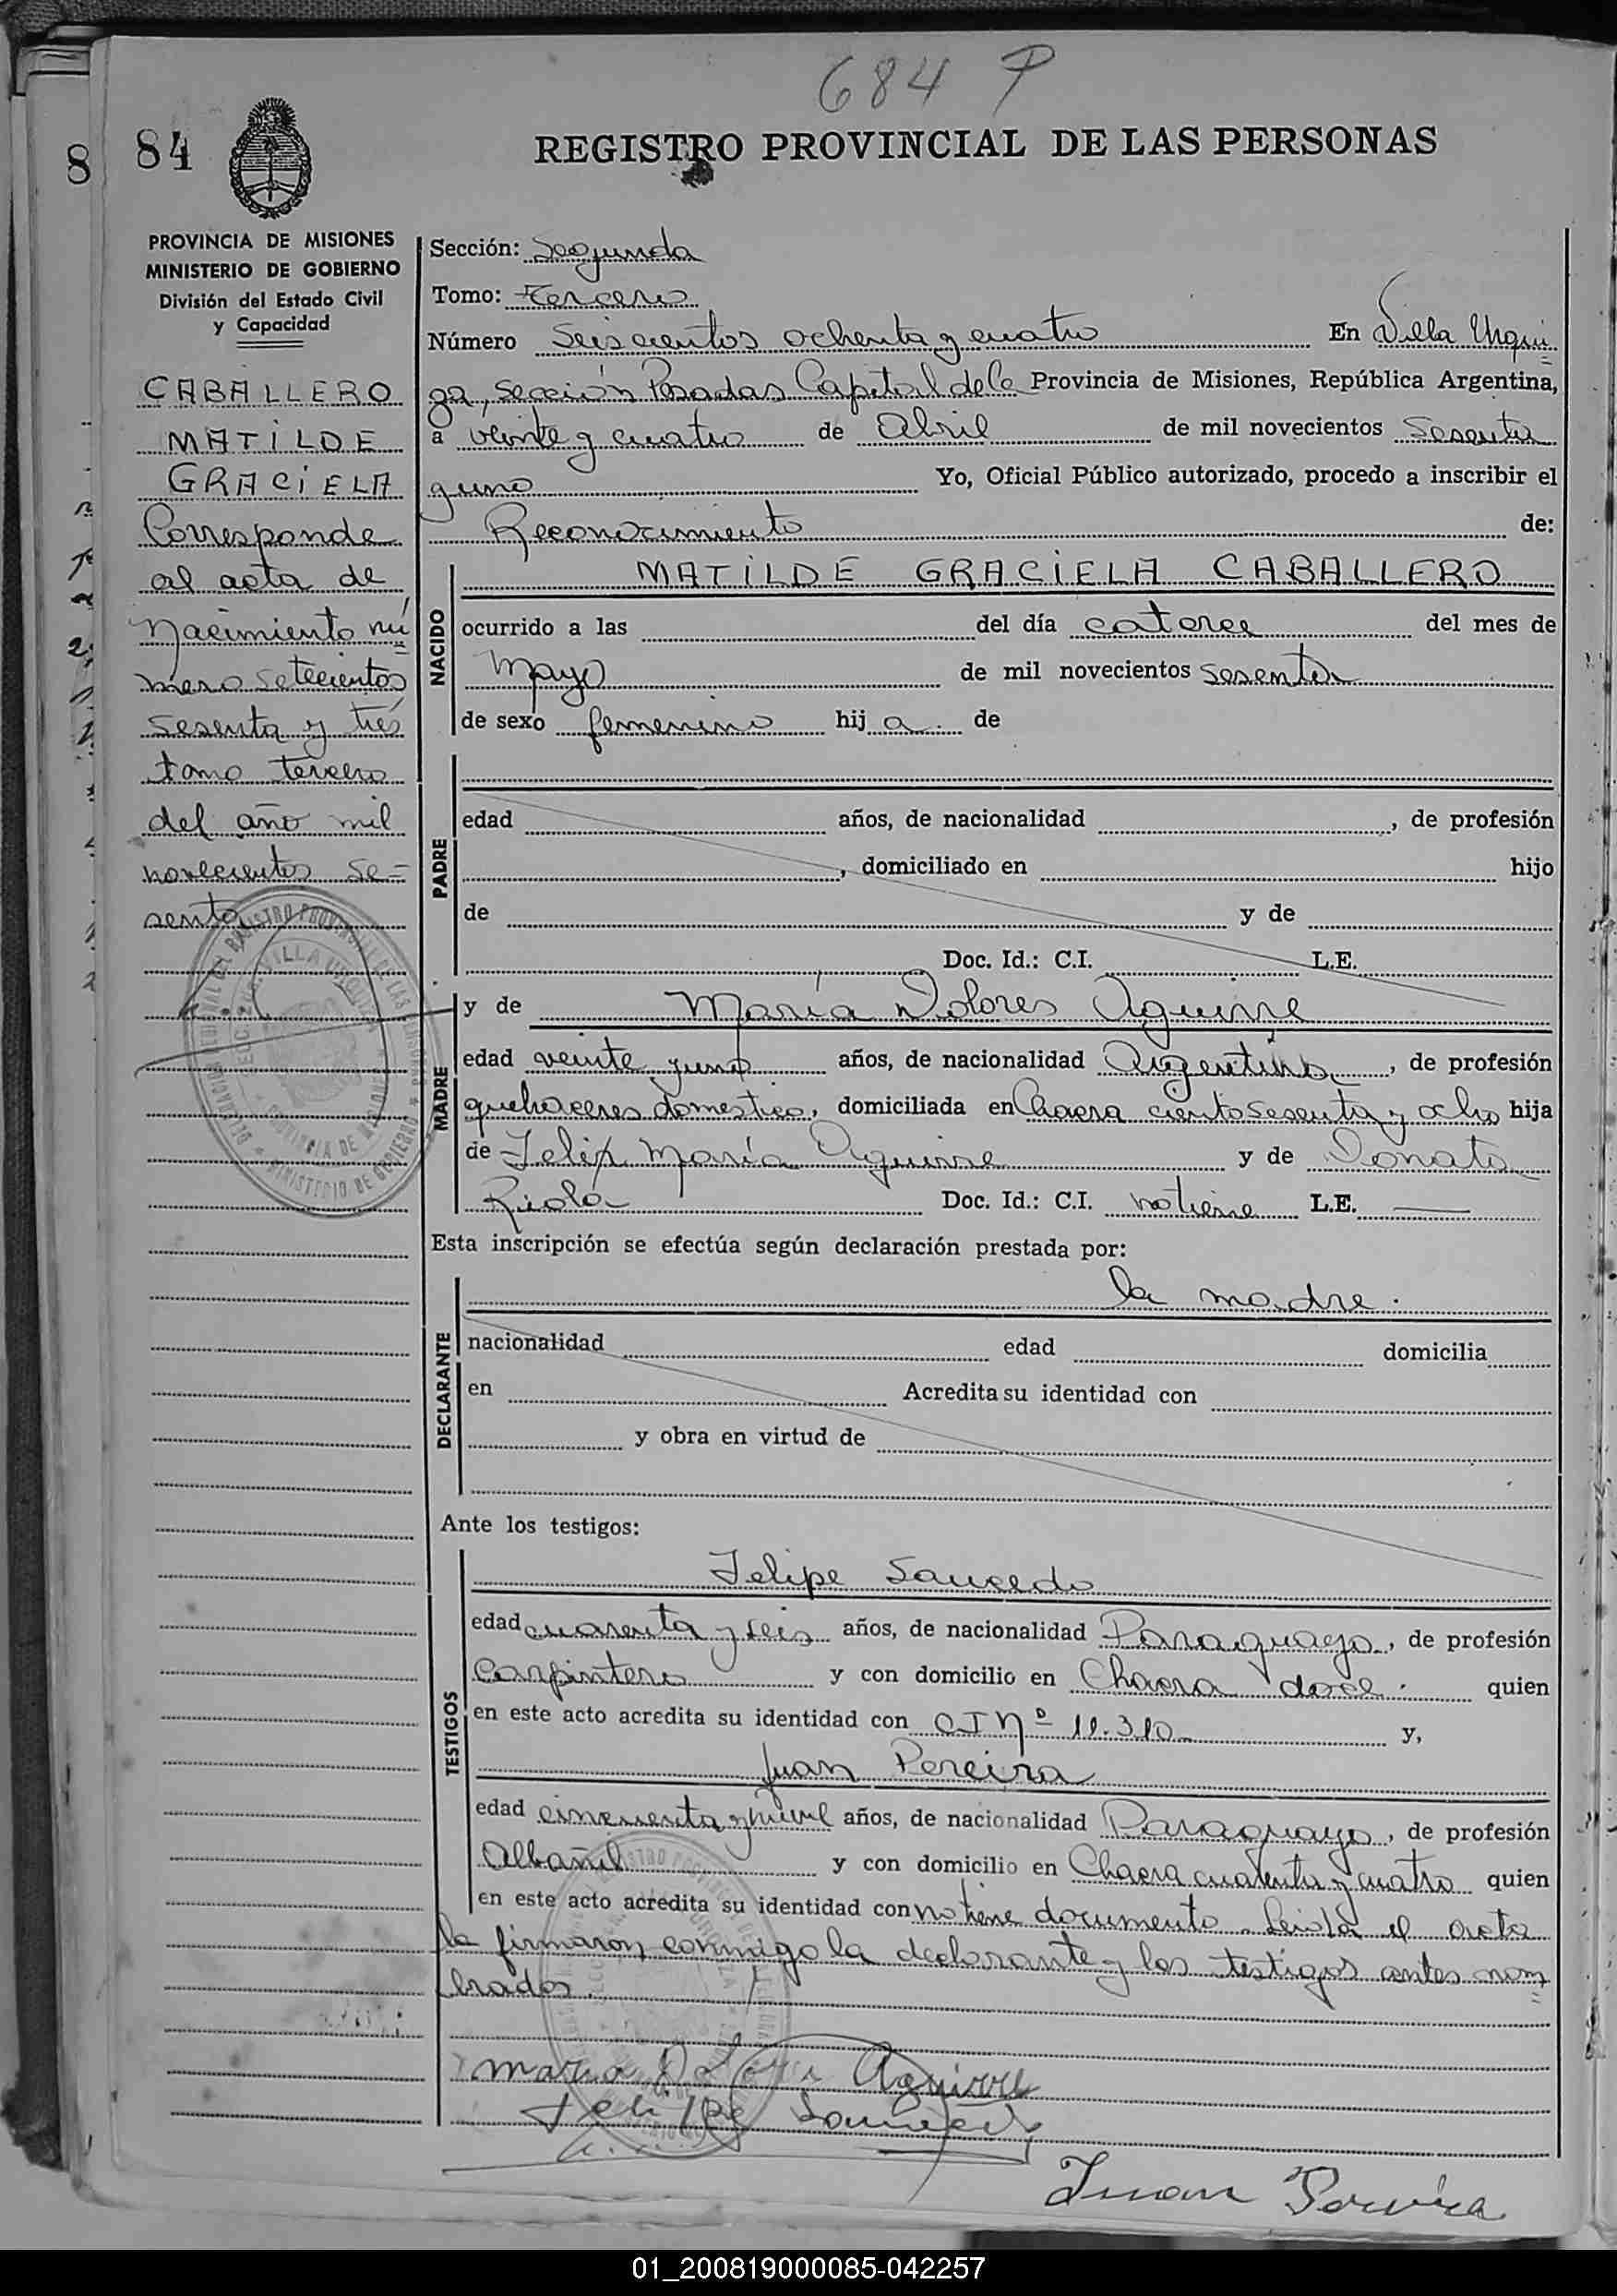 684 P
8 84
REGISTRO PROVINCIAL DE LAS PERSONAS
PROVINCIA DE MISIONES
MINISTERIO DE GOBIERNO
División del Estado Civil
y Capacidad
CABALLERO
MATILDE
GRACIELA
Corresponde
al acta de
Nacimiento nú
mero setecientos
sesenta y trés
tomo tercero
del año mil
novecientos se=
senta
Sección: Segunda
Tomo: Tercero
Número Seiscientos ochenta y cuatro En Villa Urqui
za, sección Posadas Capital de la Provincia de Misiones, República Argentina,
a veinte y cuatro de Abril de mil novecientos sesenta
y uno Yo, Oficial Público autorizado, procedo a inscribir el
Reconocimiento de:
NACIDO
MATILDE GRACIELA CABALLERO
ocurrido a las del día catorce del mes de
Mayo de mil novecientos sesenta
de sexo femenino hij a. de
PADRE
edad años, de nacionalidad , de profesión
, domiciliado en hijo
de y de
Doc. Id.: C.I. L.E.
MADRE
y de María Dolores Aguirre
edad veinte y uno años, de nacionalidad Argentina, de profesión
quehaceres domestico, domiciliada en Chacra ciento sesenta y ocho hija
de Felix María Aguirre y de Donata
Riola Doc. Id.: C.I. no tiene L.E. —
Esta inscripción se efectúa según declaración prestada por:
DECLARANTE
la madre.
nacionalidad edad domicilia
en Acredita su identidad con
y obra en virtud de
Ante los testigos:
TESTIGOS
Felipe Saucedo
edad cuarenta y seis años, de nacionalidad Paraguayo, de profesión
Carpintero y con domicilio en Chacra doce. quien
en este acto acredita su identidad con CI Nº 11.310 y,
Juan Pereira
edad cincuenta y nueve años, de nacionalidad Paraguayo, de profesión
Albañil y con domicilio en Chacra cuarenta y cuatro quien
en este acto acredita su identidad con no tiene documento. Leida el acta
la firmaron conmigo la declarante y los testigos antes nom
brados.
Maria Dolores Aguirre
Felipe Saucedo
Juan Pereira
01_200819000085-042257